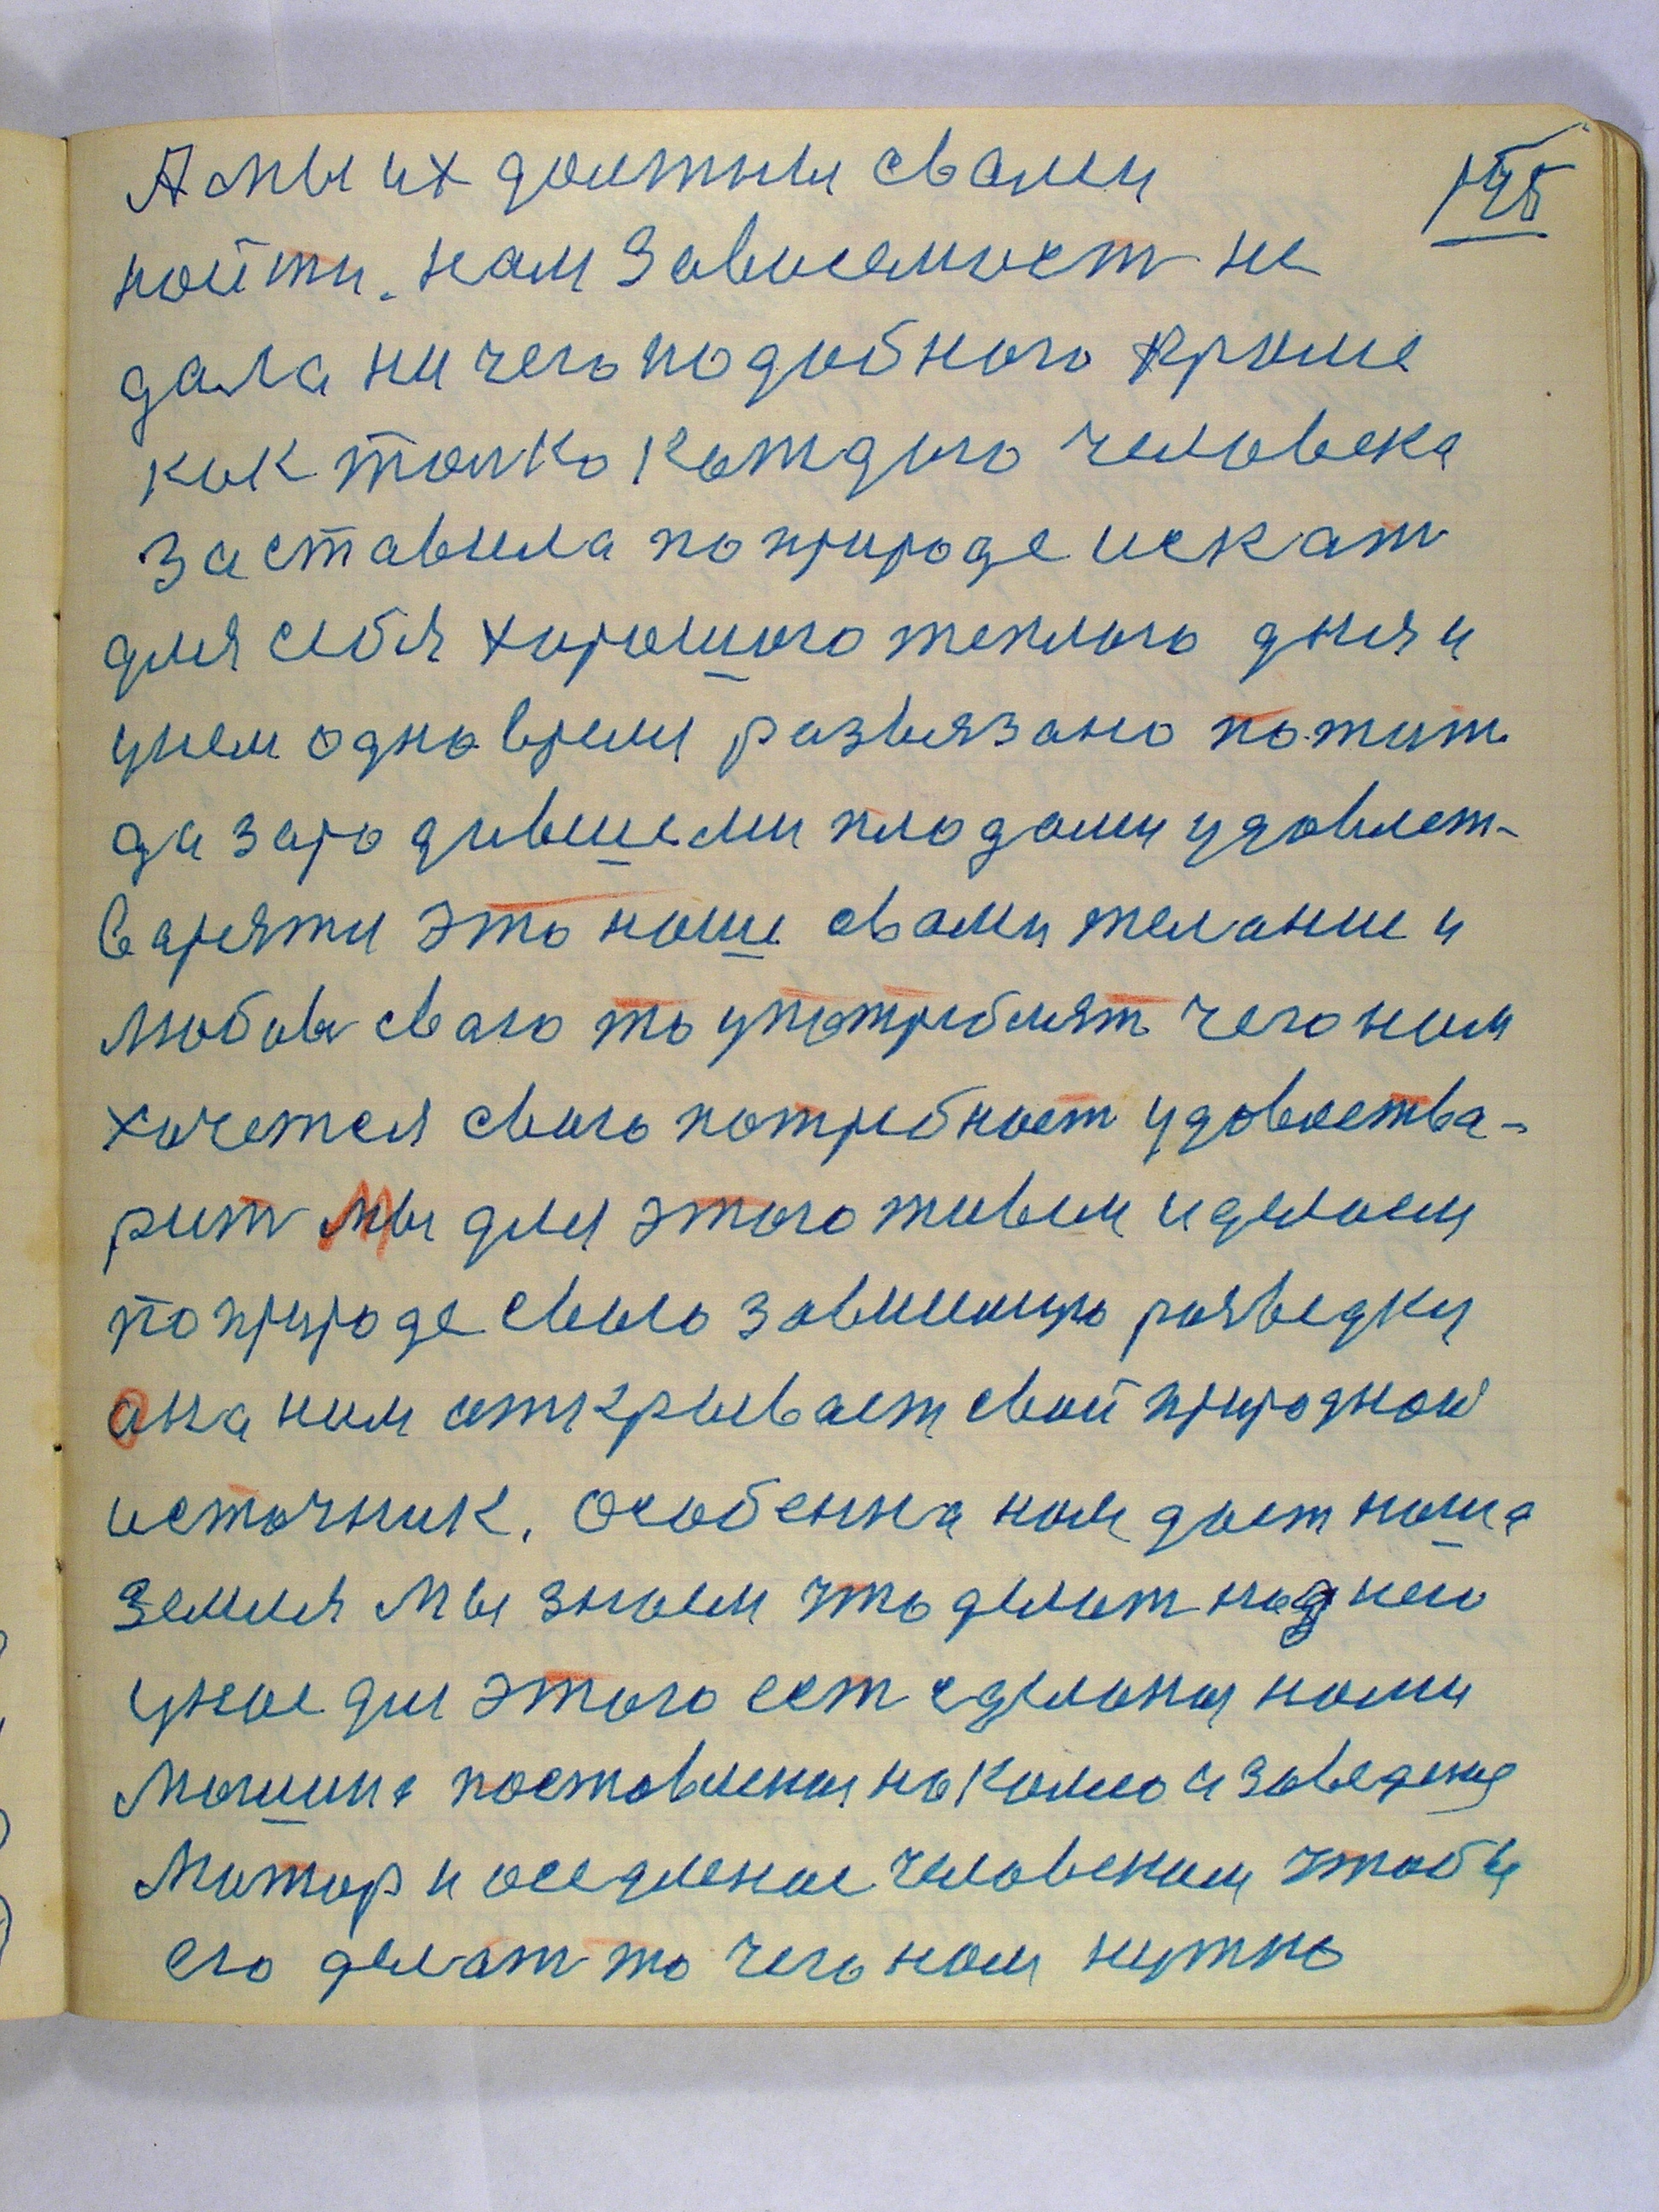 А мы их должны свами
найти. нам Зависемост не
дала ни чего подобного кроме
как толко каждого человека
заставила по природе искат
для себя хорошого теплого дня и
унем одно время развязано пожит
да зародившеми плодами удовлет-
варяти это наше свами желание и
Любов сваю то употриблят чего нам
хочется свою потрибност удовлетва-
рит Мы для этого живем и делаем
по природе свою завишею разведку
ана нам открывает свой природной
источник. Особенна нам дает наша
Земля Мы знаем что делат над нею
унас для этого ест сделаная нами
Машина поставленая на колисо и заведеная
Матор и оседленае человеком чтобы
его делат то чего нам нужно